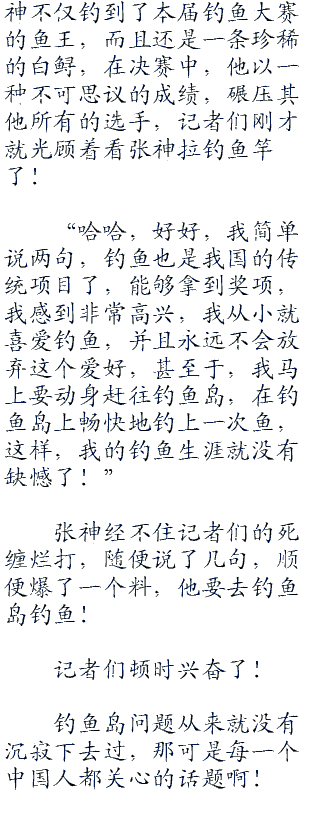 神不仅钓到了本届钓鱼大赛
的鱼王，而且还是一条珍稀
的白鲟，在决赛中，他以一
种不可思议的成绩，碾压其
他所有的选手，记者们刚才
就光顾着看张神拉钓鱼竿
了！
“哈哈，好好，我简单
说两句，钓鱼也是我国的传
统项目了，能够拿到奖项，
我感到非常高兴，我从小就
喜爱钓鱼，并且永远不会放
弃这个爱好，甚至于，我马
上要动身赶往钓鱼岛，在钓
鱼岛上畅快地钓上一次鱼，
这样，我的钓鱼生涯就没有
缺憾了！”
张神经不住记者们的死
缠烂打，随便说了几句，顺
便爆了一个料，他要去钓鱼
岛钓鱼！
记者们顿时兴奋了！
钓鱼岛问题从来就没有
沉寂下去过，那可是每一个
中国人都关心的话题啊！